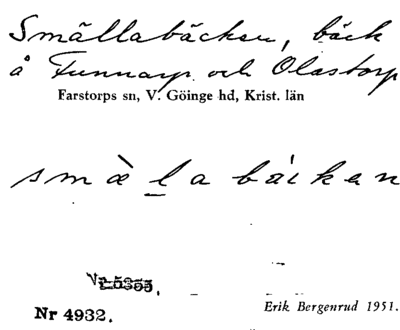 Smällabäcken, bäck
å Funnarp och Olastorp
Farstorps sn, V. Göinge hd, Krist. län
smæ̀la bákan
Nr 4932.
Erik Bergenrud 1951.